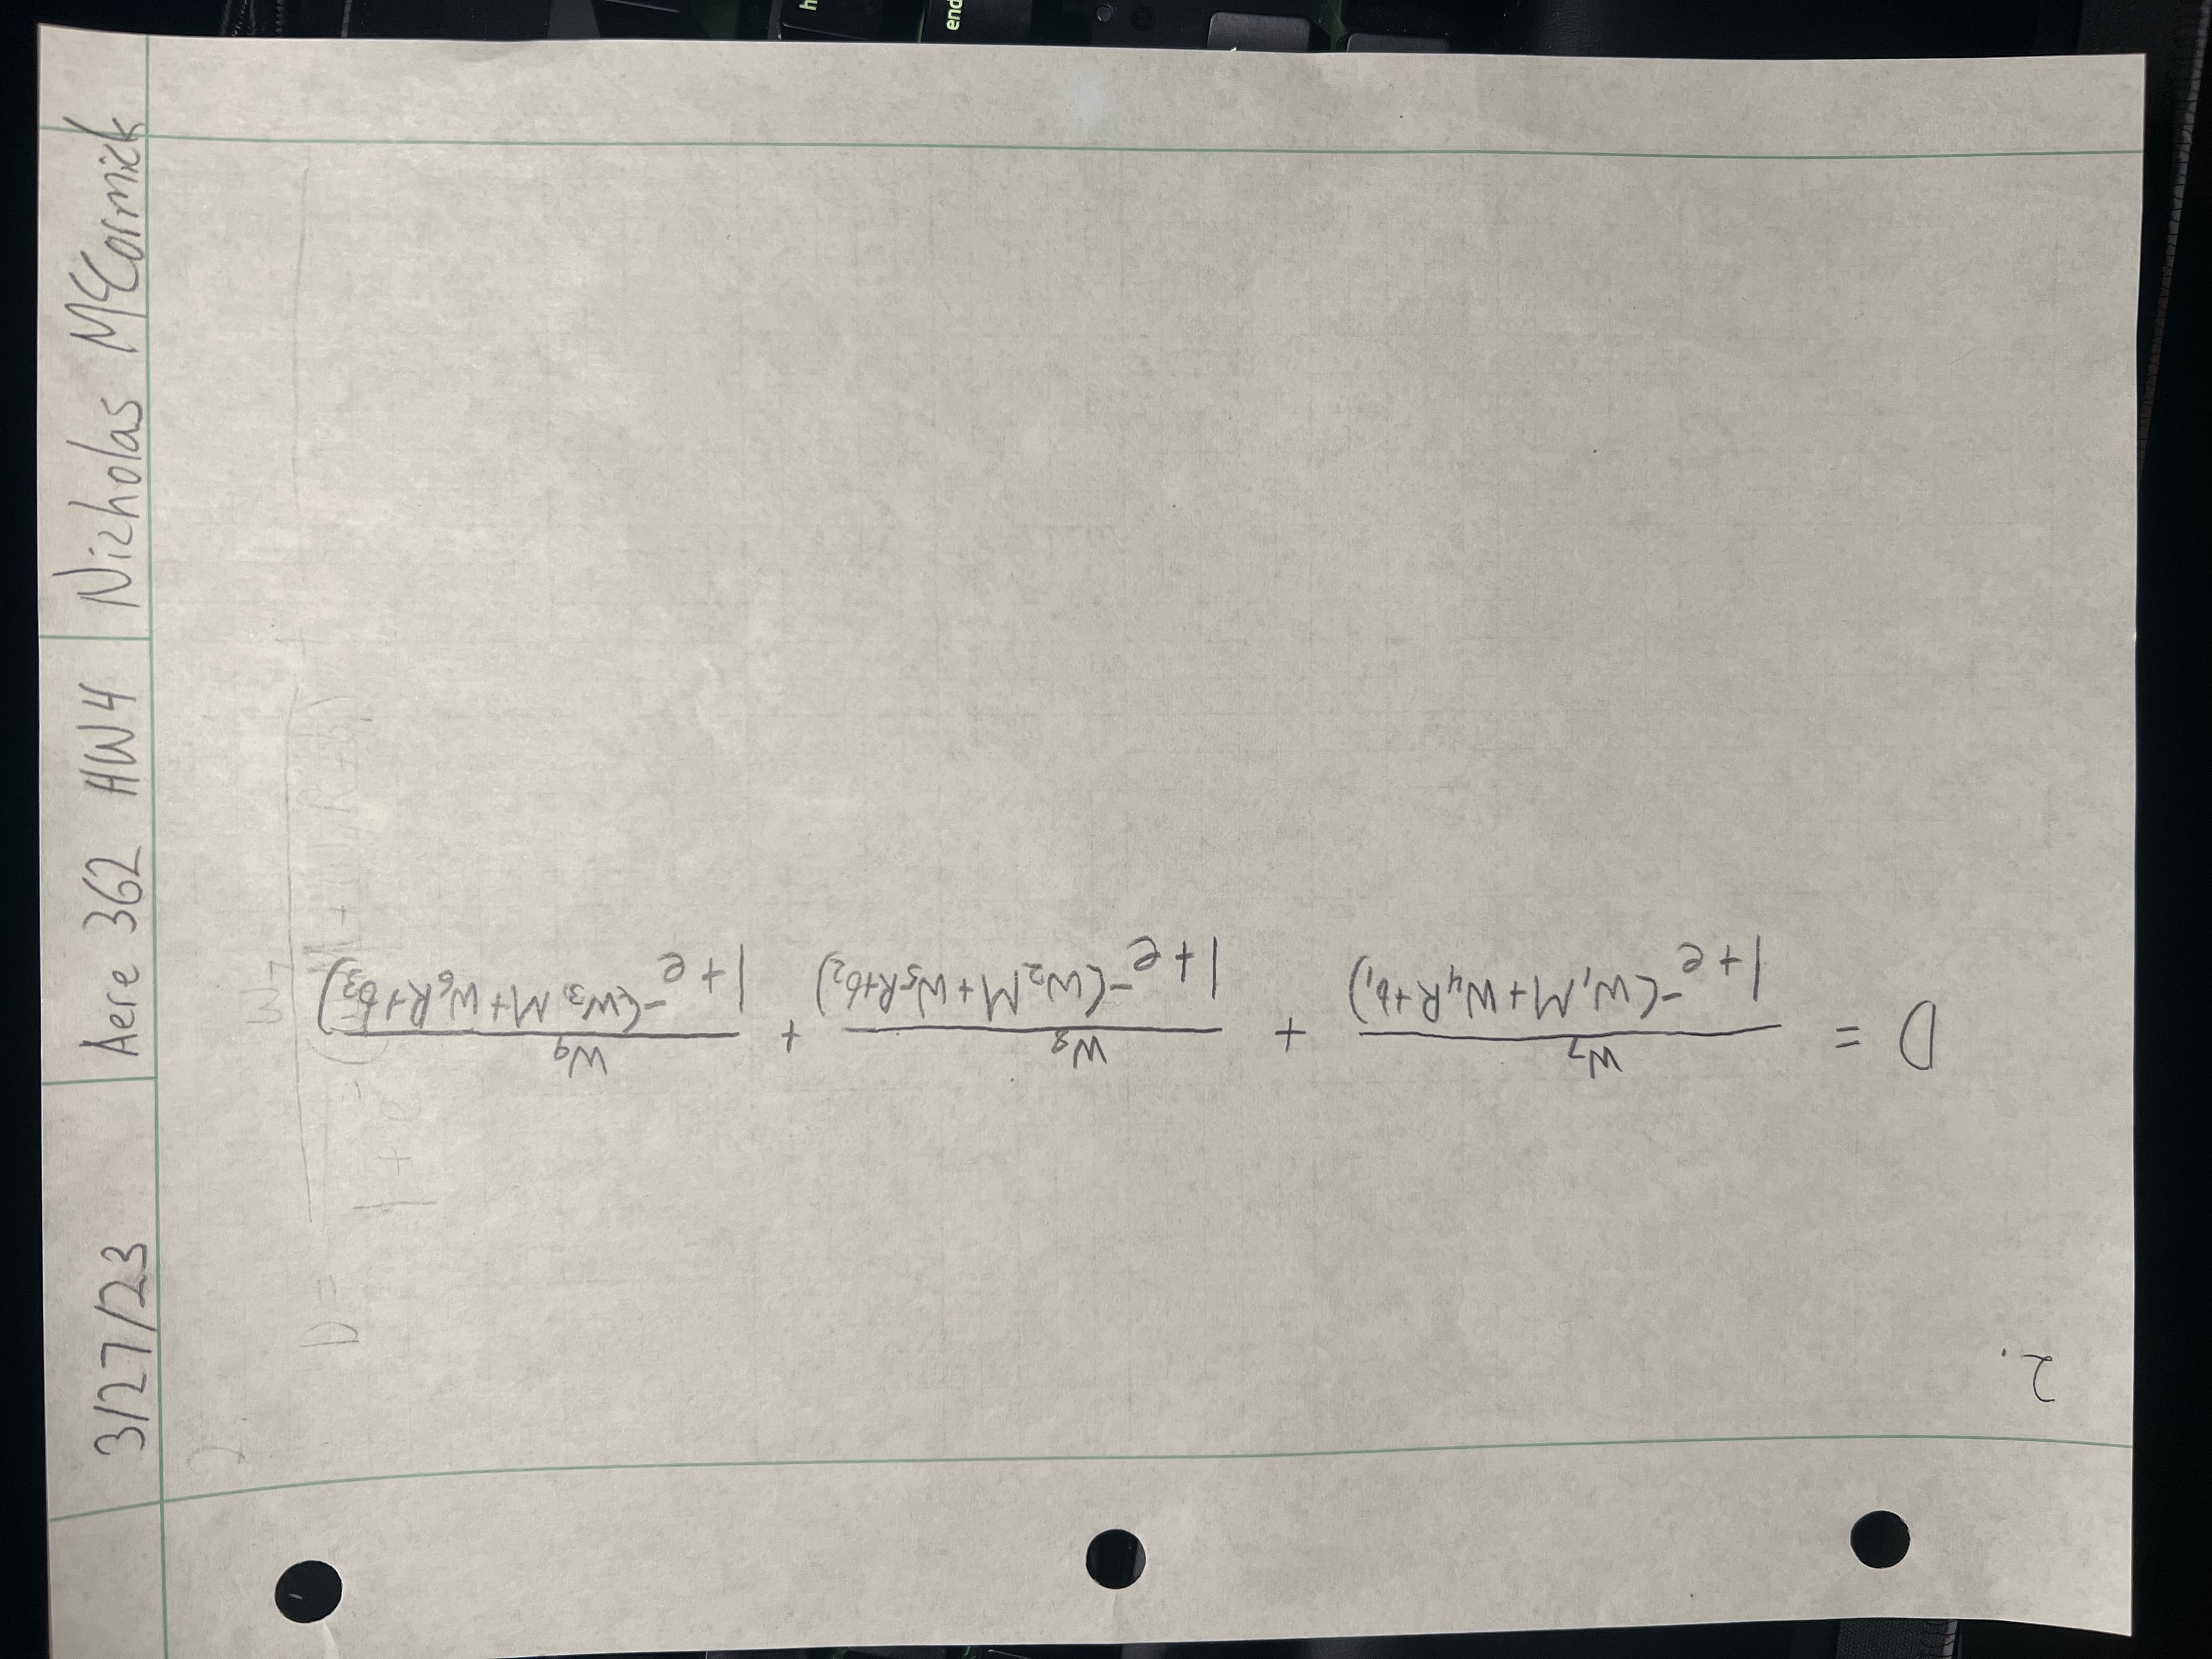 3/27/23 Aere 362 HW4 Nicholas McCormick
2.
D = W₇ / (1 + e^-(W₁M + W₄R + b₁)) + W₈ / (1 + e^-(W₂M + W₅R + b₂)) + W₉ / (1 + e^-(W₃M + W₆R + b₃))
h
end